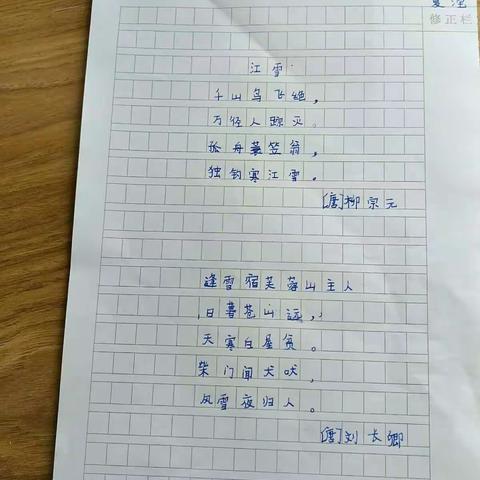 修正栏
江雪
千山鸟飞绝，
万径人踪灭。
孤舟蓑笠翁，
独钓寒江雪。
[唐]柳宗元
逢雪宿芙蓉山主人
日暮苍山远，
天寒白屋贫。
柴门闻犬吠，
风雪夜归人。
[唐]刘长卿